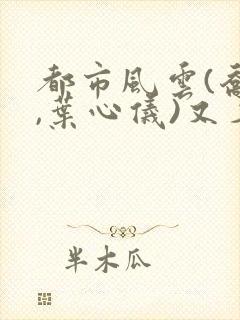 都市風雲(喬
,葉心儀)又
半木瓜